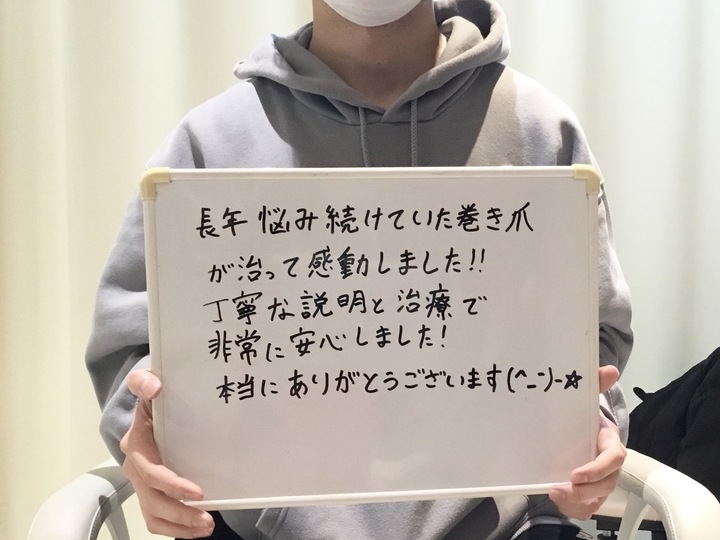 長年悩み続けていた巻き爪
が治って感動しました!!
丁寧な説明と治療で
非常に安心しました!
本当にありがとうございます(^_-)-☆